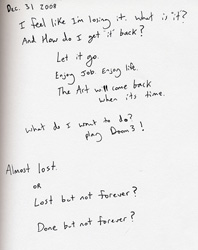 Dec. 31 2008
I feel like I'm losing it. What is it?
And How do I get "it" back?
Let it go.
Enjoy Job. Enjoy life.
The Art will come back
when its time.
What do I want to do?
play Doom 3!
Almost lost.
OR
Lost but not forever?
Done but not forever?